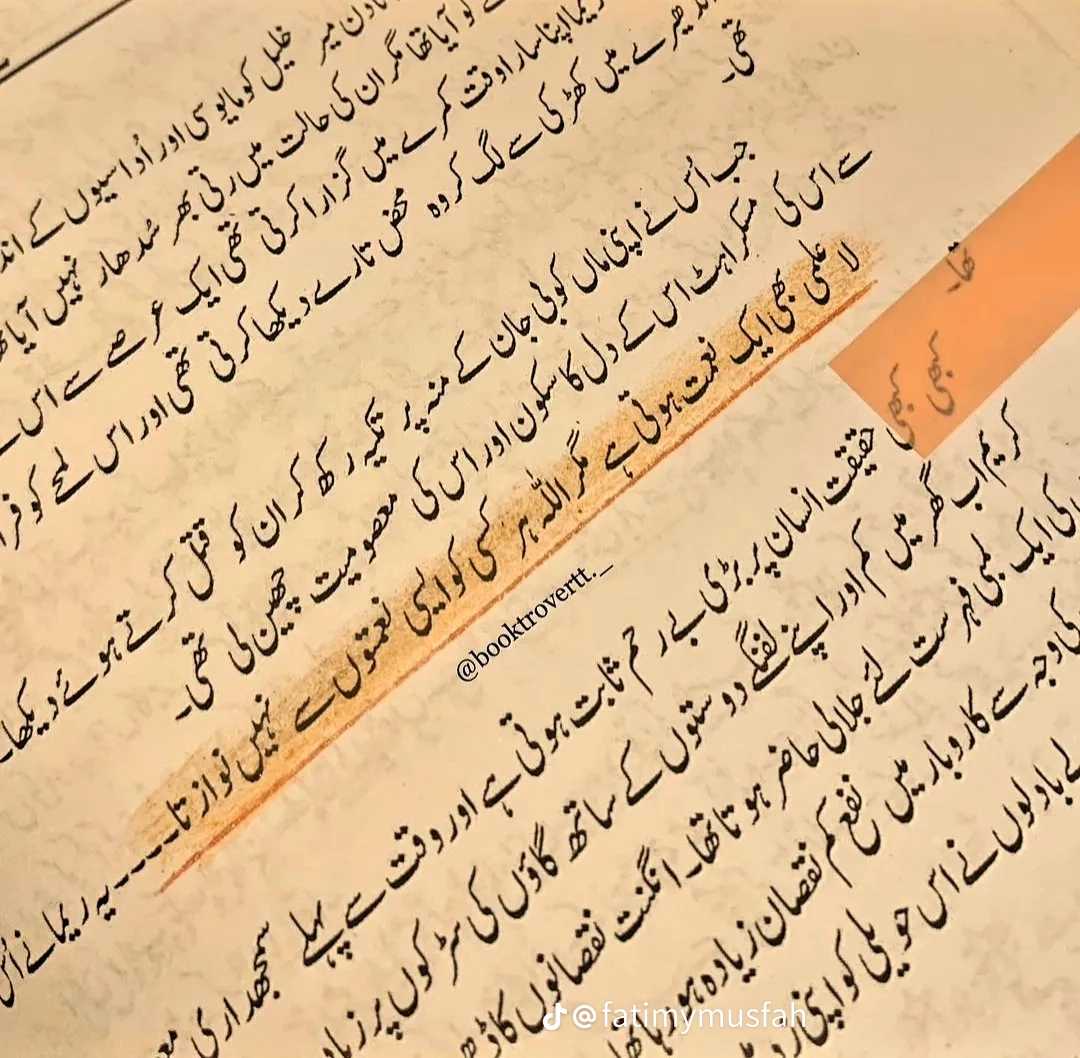 میر خلیل کو مایوسی اور اُداسیوں کے
آیا تھا مگر ان کی حالت میں رتی بھر سُدھار نہیں آیا
ریما اپنا سارا وقت کمرے میں گزارا کرتی تھی ایک عرصے سے اس
اندھیرے میں کھڑکی سے لگ کر وہ محض تارے دیکھا کرتی تھی اور اس لمحے کو
تھی۔
جب اُس نے اپنی ماں کو بی جان کے منہ پر تکیہ رکھ کر ان کو قتل کرتے ہوئے دیکھا
سے اس کی مسکراہٹ اس کے دل کا سکون اور اس کی معصومیت چھین لی تھی۔
لا علمی بھی ایک نعمت ہوتی ہے مگر اللہ ہر کسی کو ایسی نعمتوں سے نہیں نوازتا۔۔۔۔ یہ ریما نے اس
تھا۔
بھی
حقیقت انسان پر بڑی بے رحم ثابت ہوتی ہے اور وقت سے پہلے سمجھداری
کریم اب گھر میں کم اور اپنے لفنگے دوستوں کے ساتھ گاؤں کی سڑکوں پر
کی ایک لمبی فہرست لئے جلالی حاضر ہوتا تھا۔ انگنت نقصانوں کا
کی وجہ سے کاروبار میں نفع کم نقصان زیادہ ہو رہا تھا
بادلوں نے اس حویلی کو اپنی
@booktrovertt._
@fatimymusfah